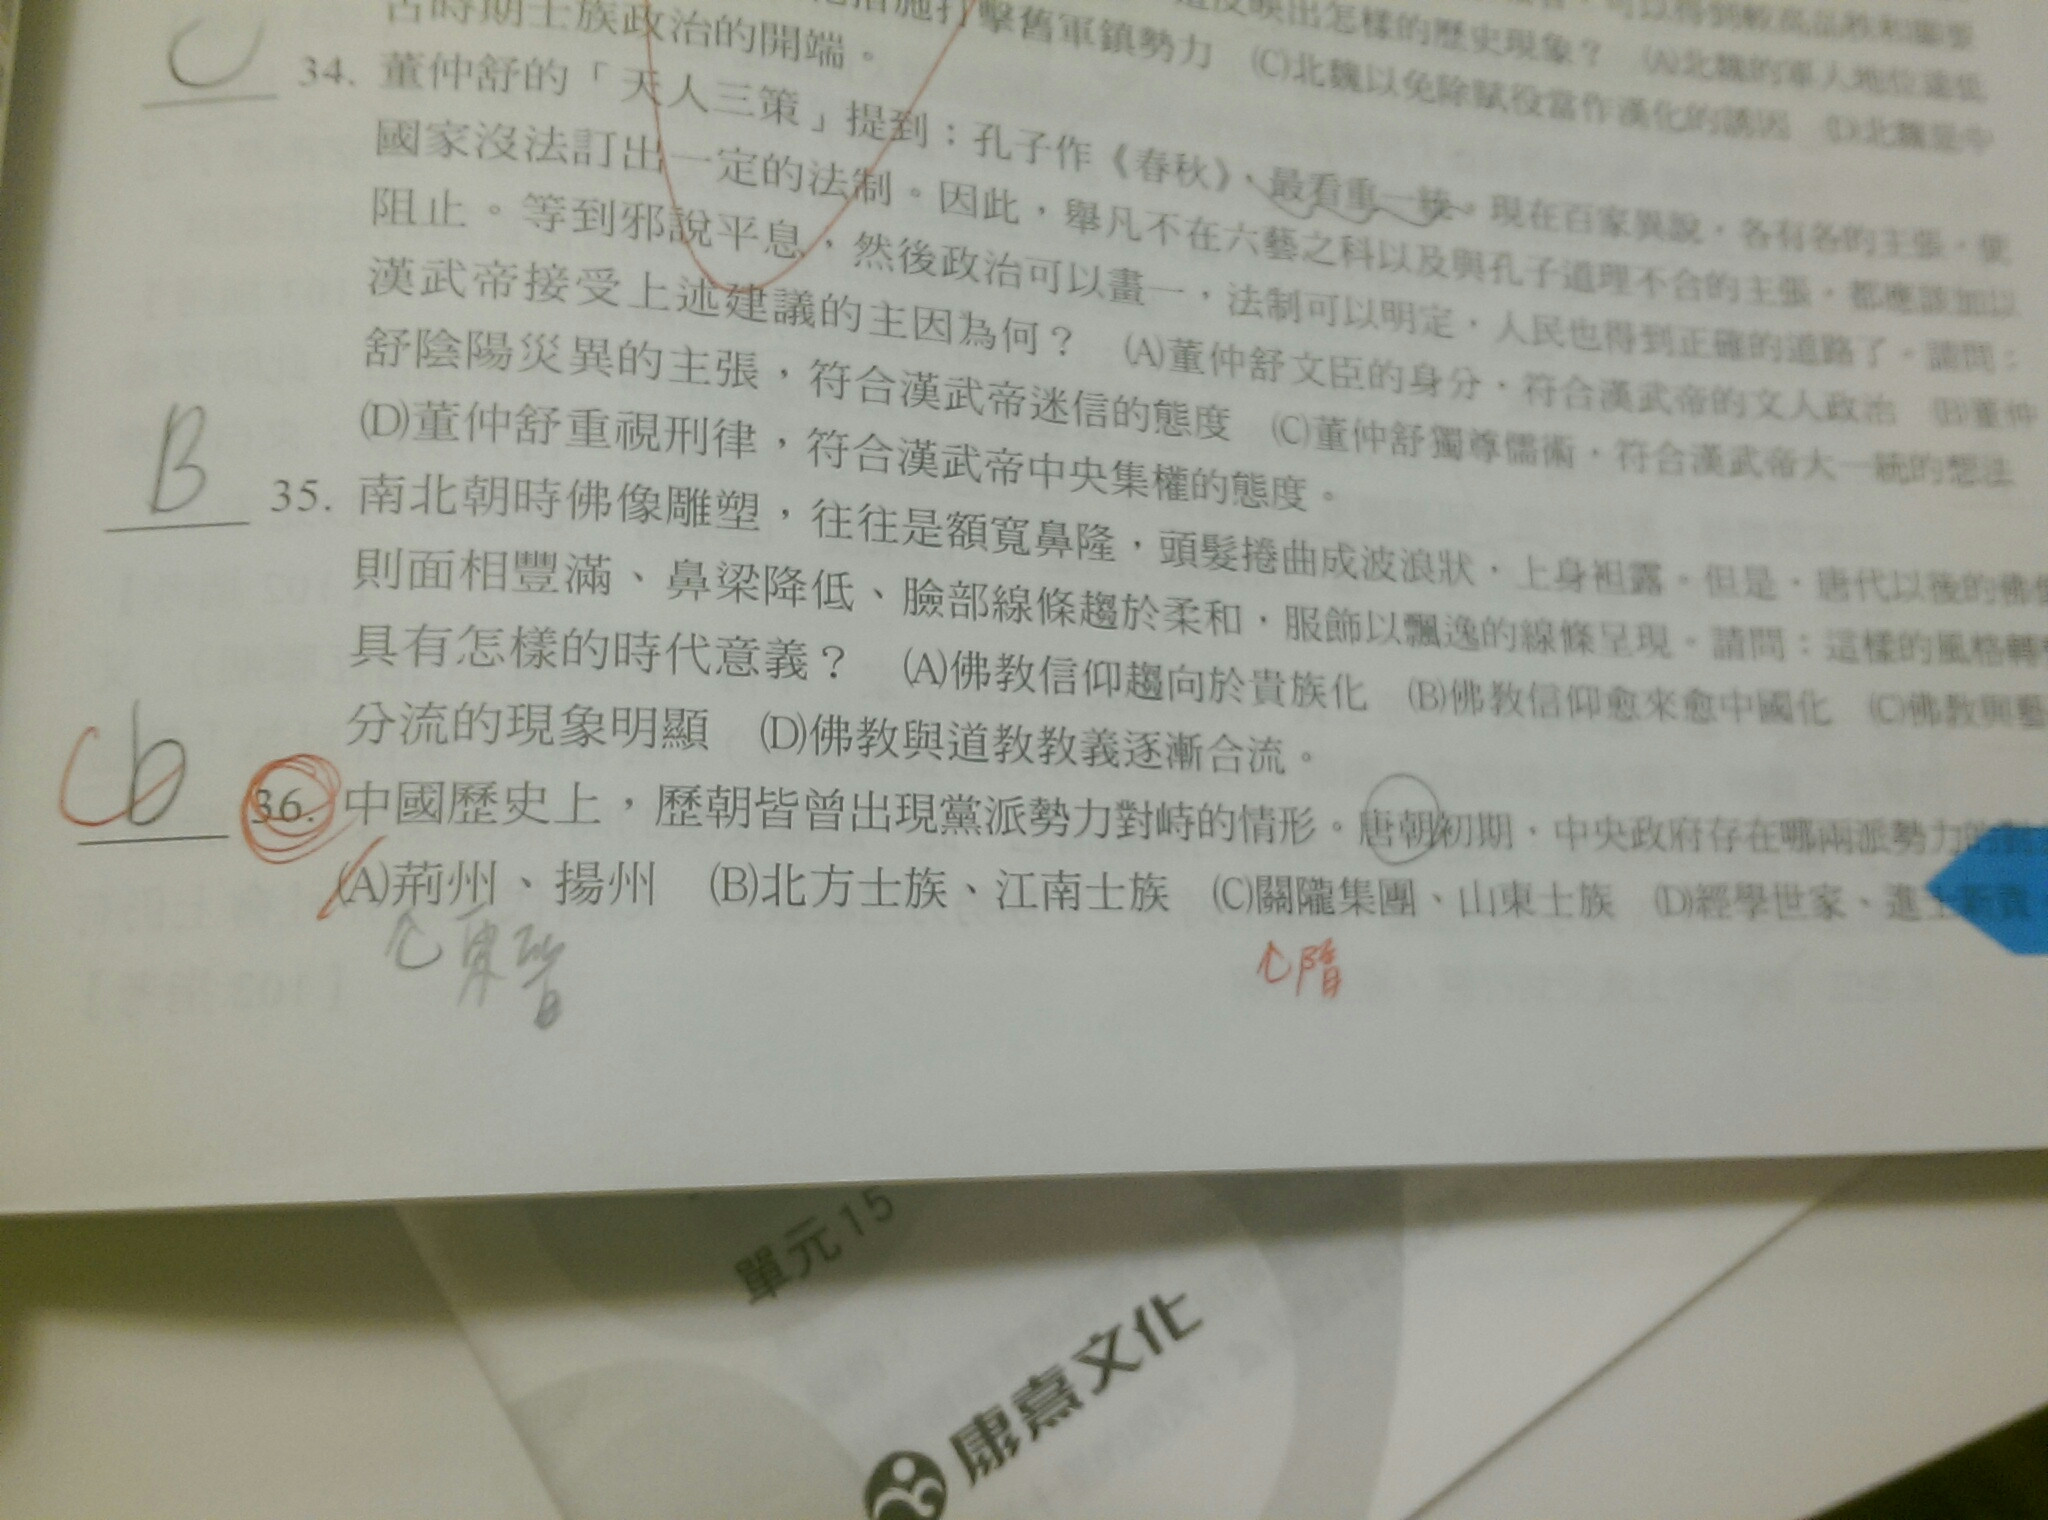 古時期士族政治的開端。
打擊舊軍鎮勢力 (C)北魏以免除賦役當作漢化的誘因
映出怎樣的歷史現象? (A)北魏的軍人地位遠低
可以得到較高品秩和顯要
C 34. 董仲舒的「天人三策」提到:孔子作《春秋》,最看重一統。現在百家異說,各有各的主張,使
國家沒法訂出一定的法制。因此,舉凡不在六藝之科以及與孔子道理不合的主張,都應該加以
阻止。等到邪說平息,然後政治可以畫一,法制可以明定,人民也得到正確的道路了。請問:
漢武帝接受上述建議的主因為何? (A)董仲舒文臣的身分,符合漢武帝的文人政治 (B)董仲
舒陰陽災異的主張,符合漢武帝迷信的態度 (C)董仲舒獨尊儒術,符合漢武帝大一統的想法
(D)董仲舒重視刑律,符合漢武帝中央集權的態度。
B 35. 南北朝時佛像雕塑,往往是額寬鼻隆,頭髮捲曲成波浪狀,上身袒露。但是,唐代以後的佛像
則面相豐滿、鼻梁降低、臉部線條趨於柔和,服飾以飄逸的線條呈現。請問:這樣的風格轉
具有怎樣的時代意義? (A)佛教信仰趨向於貴族化 (B)佛教信仰愈來愈中國化 (C)佛教與藝
分流的現象明顯 (D)佛教與道教教義逐漸合流。
C b 36. 中國歷史上,歷朝皆曾出現黨派勢力對峙的情形。唐朝初期,中央政府存在哪兩派勢力的對
(A)荊州、揚州 (B)北方士族、江南士族 (C)關隴集團、山東士族 (D)經學世家、進士新貴
↑東晉
↑隋
單元15
康熹文化